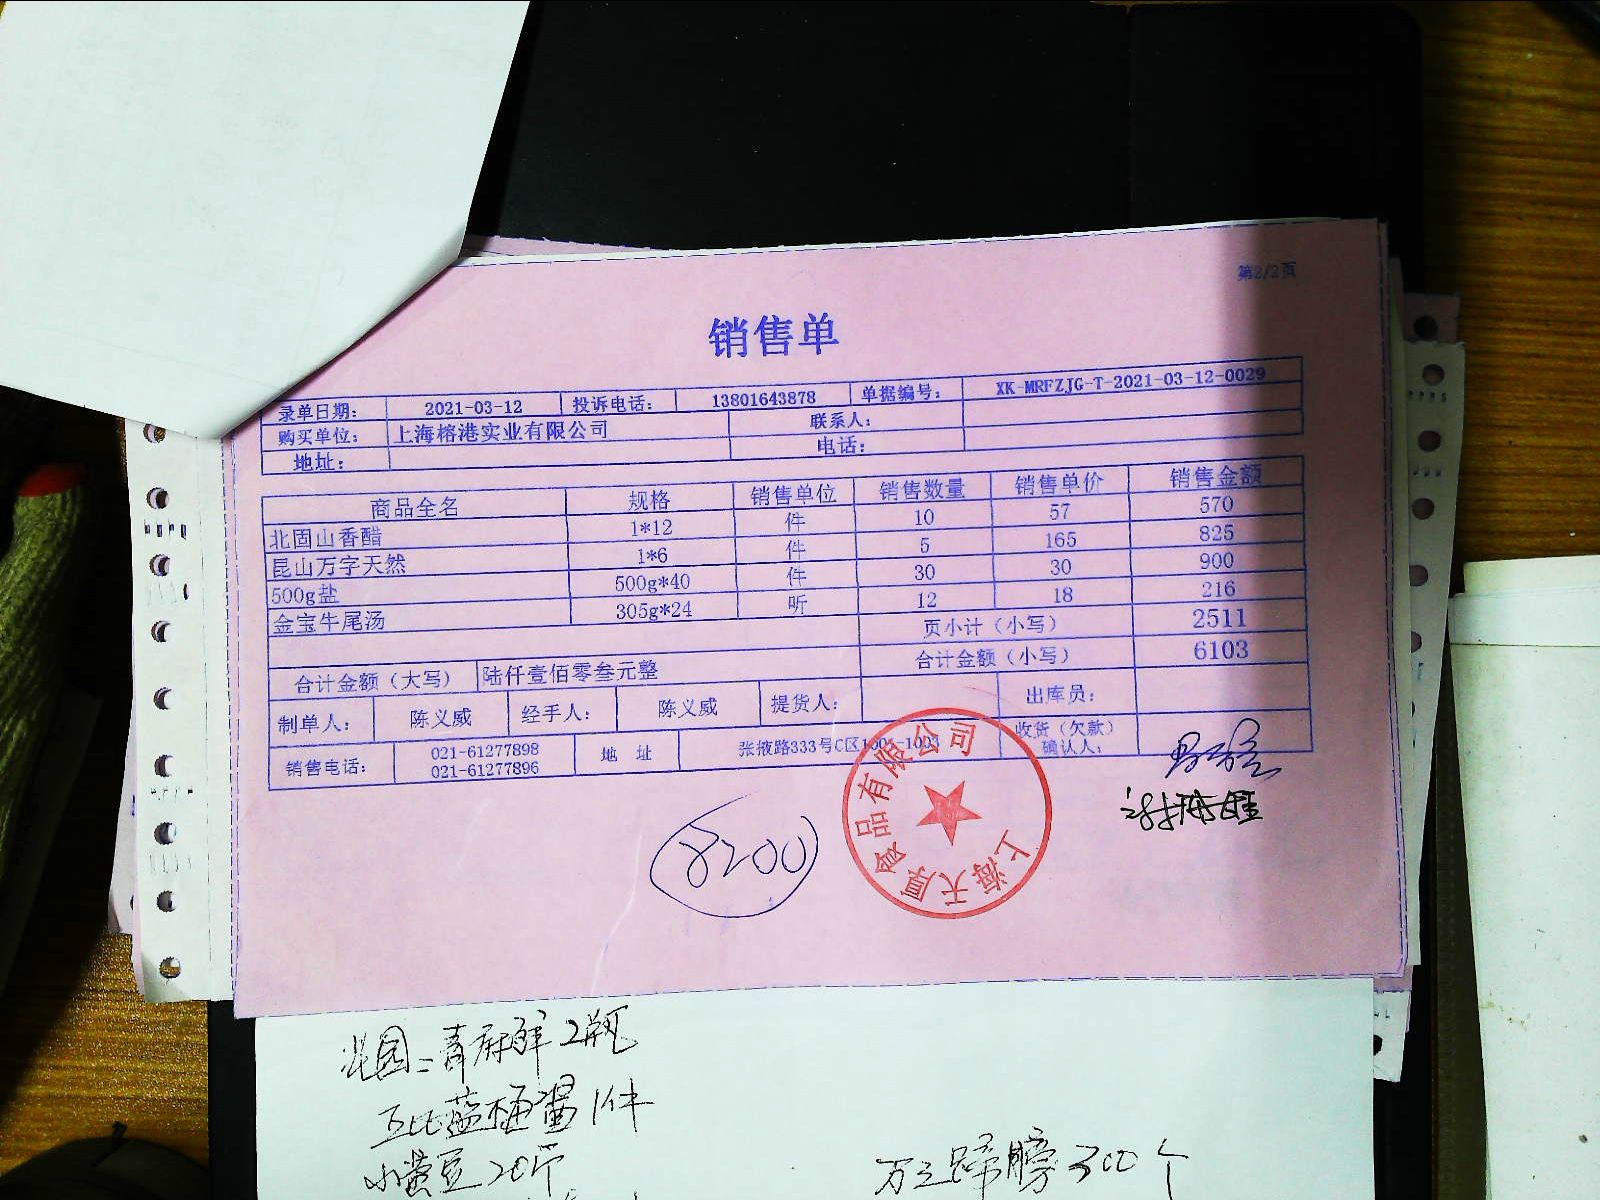 第2/2页
销售单
录单日期： 2021-03-12 投诉电话： 13801643878 单据编号： XK-MRFZJG-T-2021-03-12-0029
购买单位： 上海榕港实业有限公司 联系人：
地址： 电话：
商品全名 规格 销售单位 销售数量 销售单价 销售金额
北固山香醋 1*12 件 10 57 570
昆山万字天然 1*6 件 5 165 825
500g盐 500g*40 件 30 30 900
金宝牛尾汤 305g*24 听 12 18 216
页小计（小写） 2511
合计金额（大写） 陆仟壹佰零叁元整 合计金额（小写） 6103
制单人： 陈义威 经手人： 陈义威 提货人： 出库员：
销售电话： 021-61277898 021-61277896 地 址 张掖路333号C区1001-1003 收货（欠款）确认人：
8200
上海天厚食品有限公司
2瓶
1件
小黄豆20斤
300个